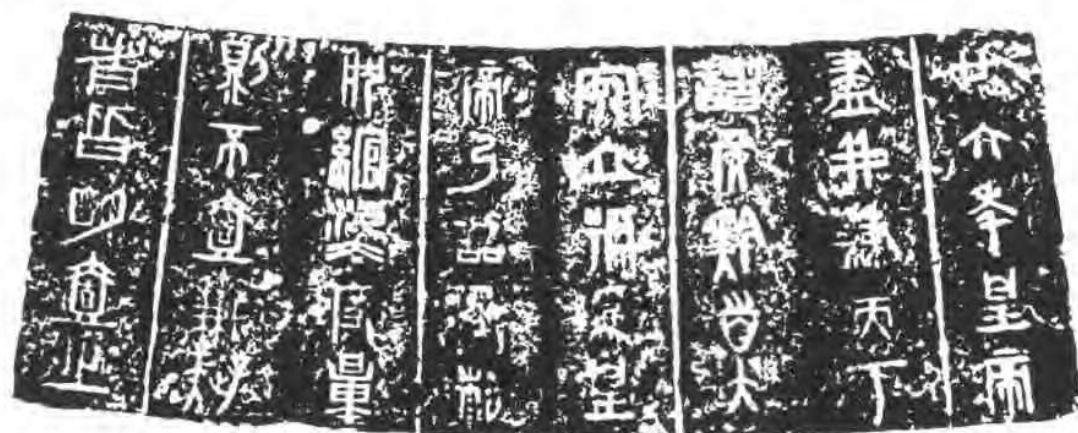 廿六年皇帝
盡并兼天下
諸侯黔首大
安立號為皇
帝乃詔丞相
狀綰灋度量
則不壹歉疑
者皆明壹之